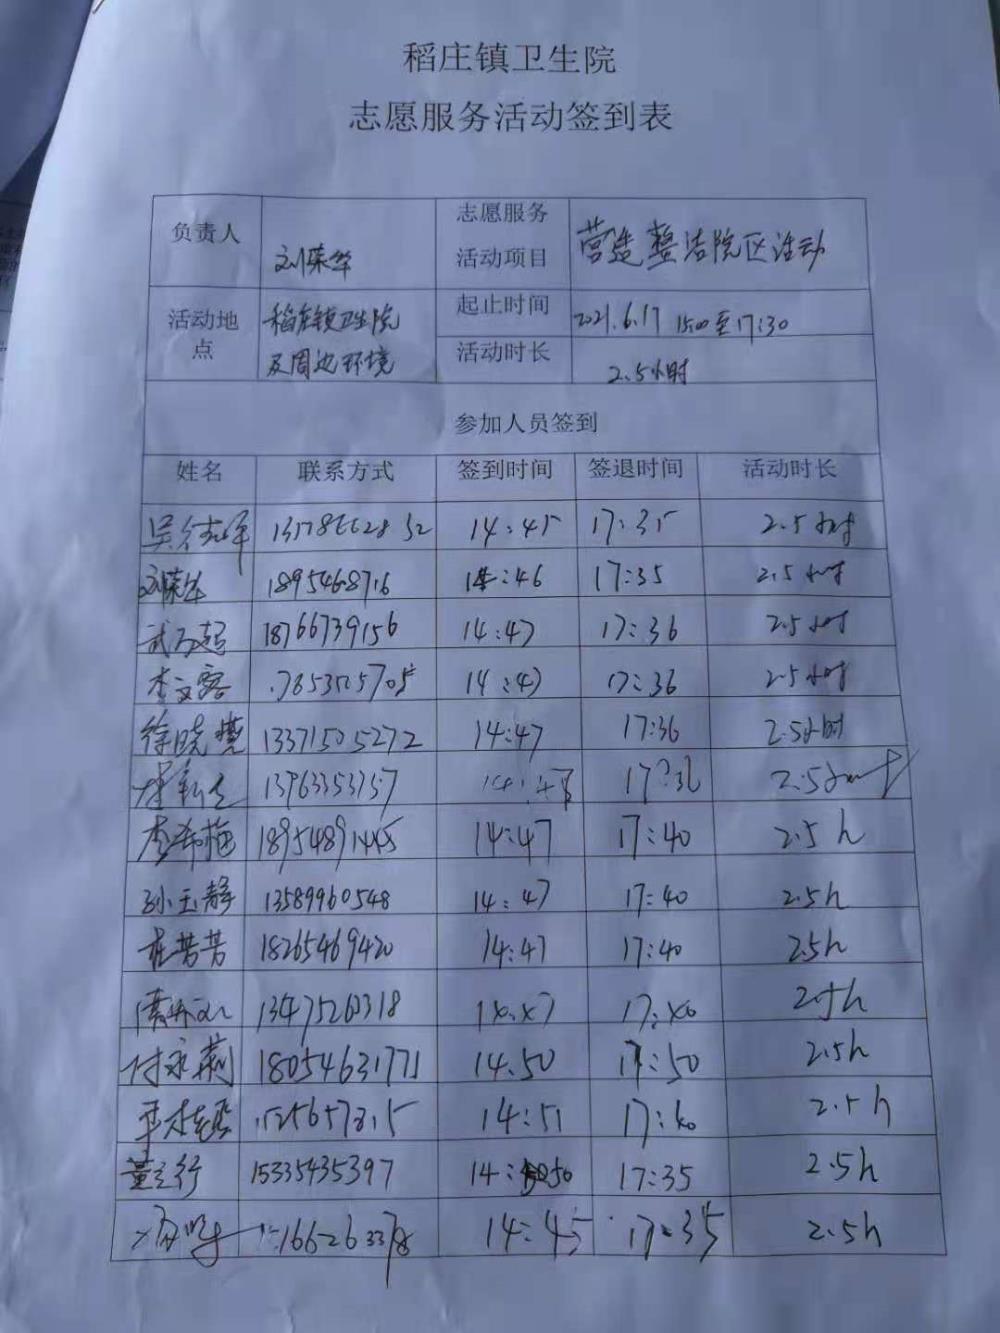 稻庄镇卫生院
志愿服务活动签到表
负责人 刘荣华 志愿服务活动项目 营造整洁院区活动
活动地点 稻庄镇卫生院及周边环境 起止时间 2021.6.17 15:00至17:30
活动时长 2.5小时
参加人员签到
姓名 联系方式 签到时间 签退时间 活动时长
14:45 17:35 2.5小时
刘荣华 1895468716 14:46 17:35 2.5小时
18766739156 14:47 17:36 2.5小时
李文容 14:47 17:36 2.5小时
徐晓燕 13371505272 14:47 17:36 2.5小时
13963353757 14:48 17:36 2.5小时
李希梅 18954891445 14:47 17:40 2.5h
孙玉静 13589960548 14:47 17:40 2.5h
崔芳芳 18265469420 14:47 17:40 2.5h
13475260318 14:47 17:40 2.5h
付永莉 18054631771 14.50 17:50 2.5h
14:51 17:40 2.5h
董立行 15335435397 14:50 17:35 2.5h
14:45 17:35 2.5h